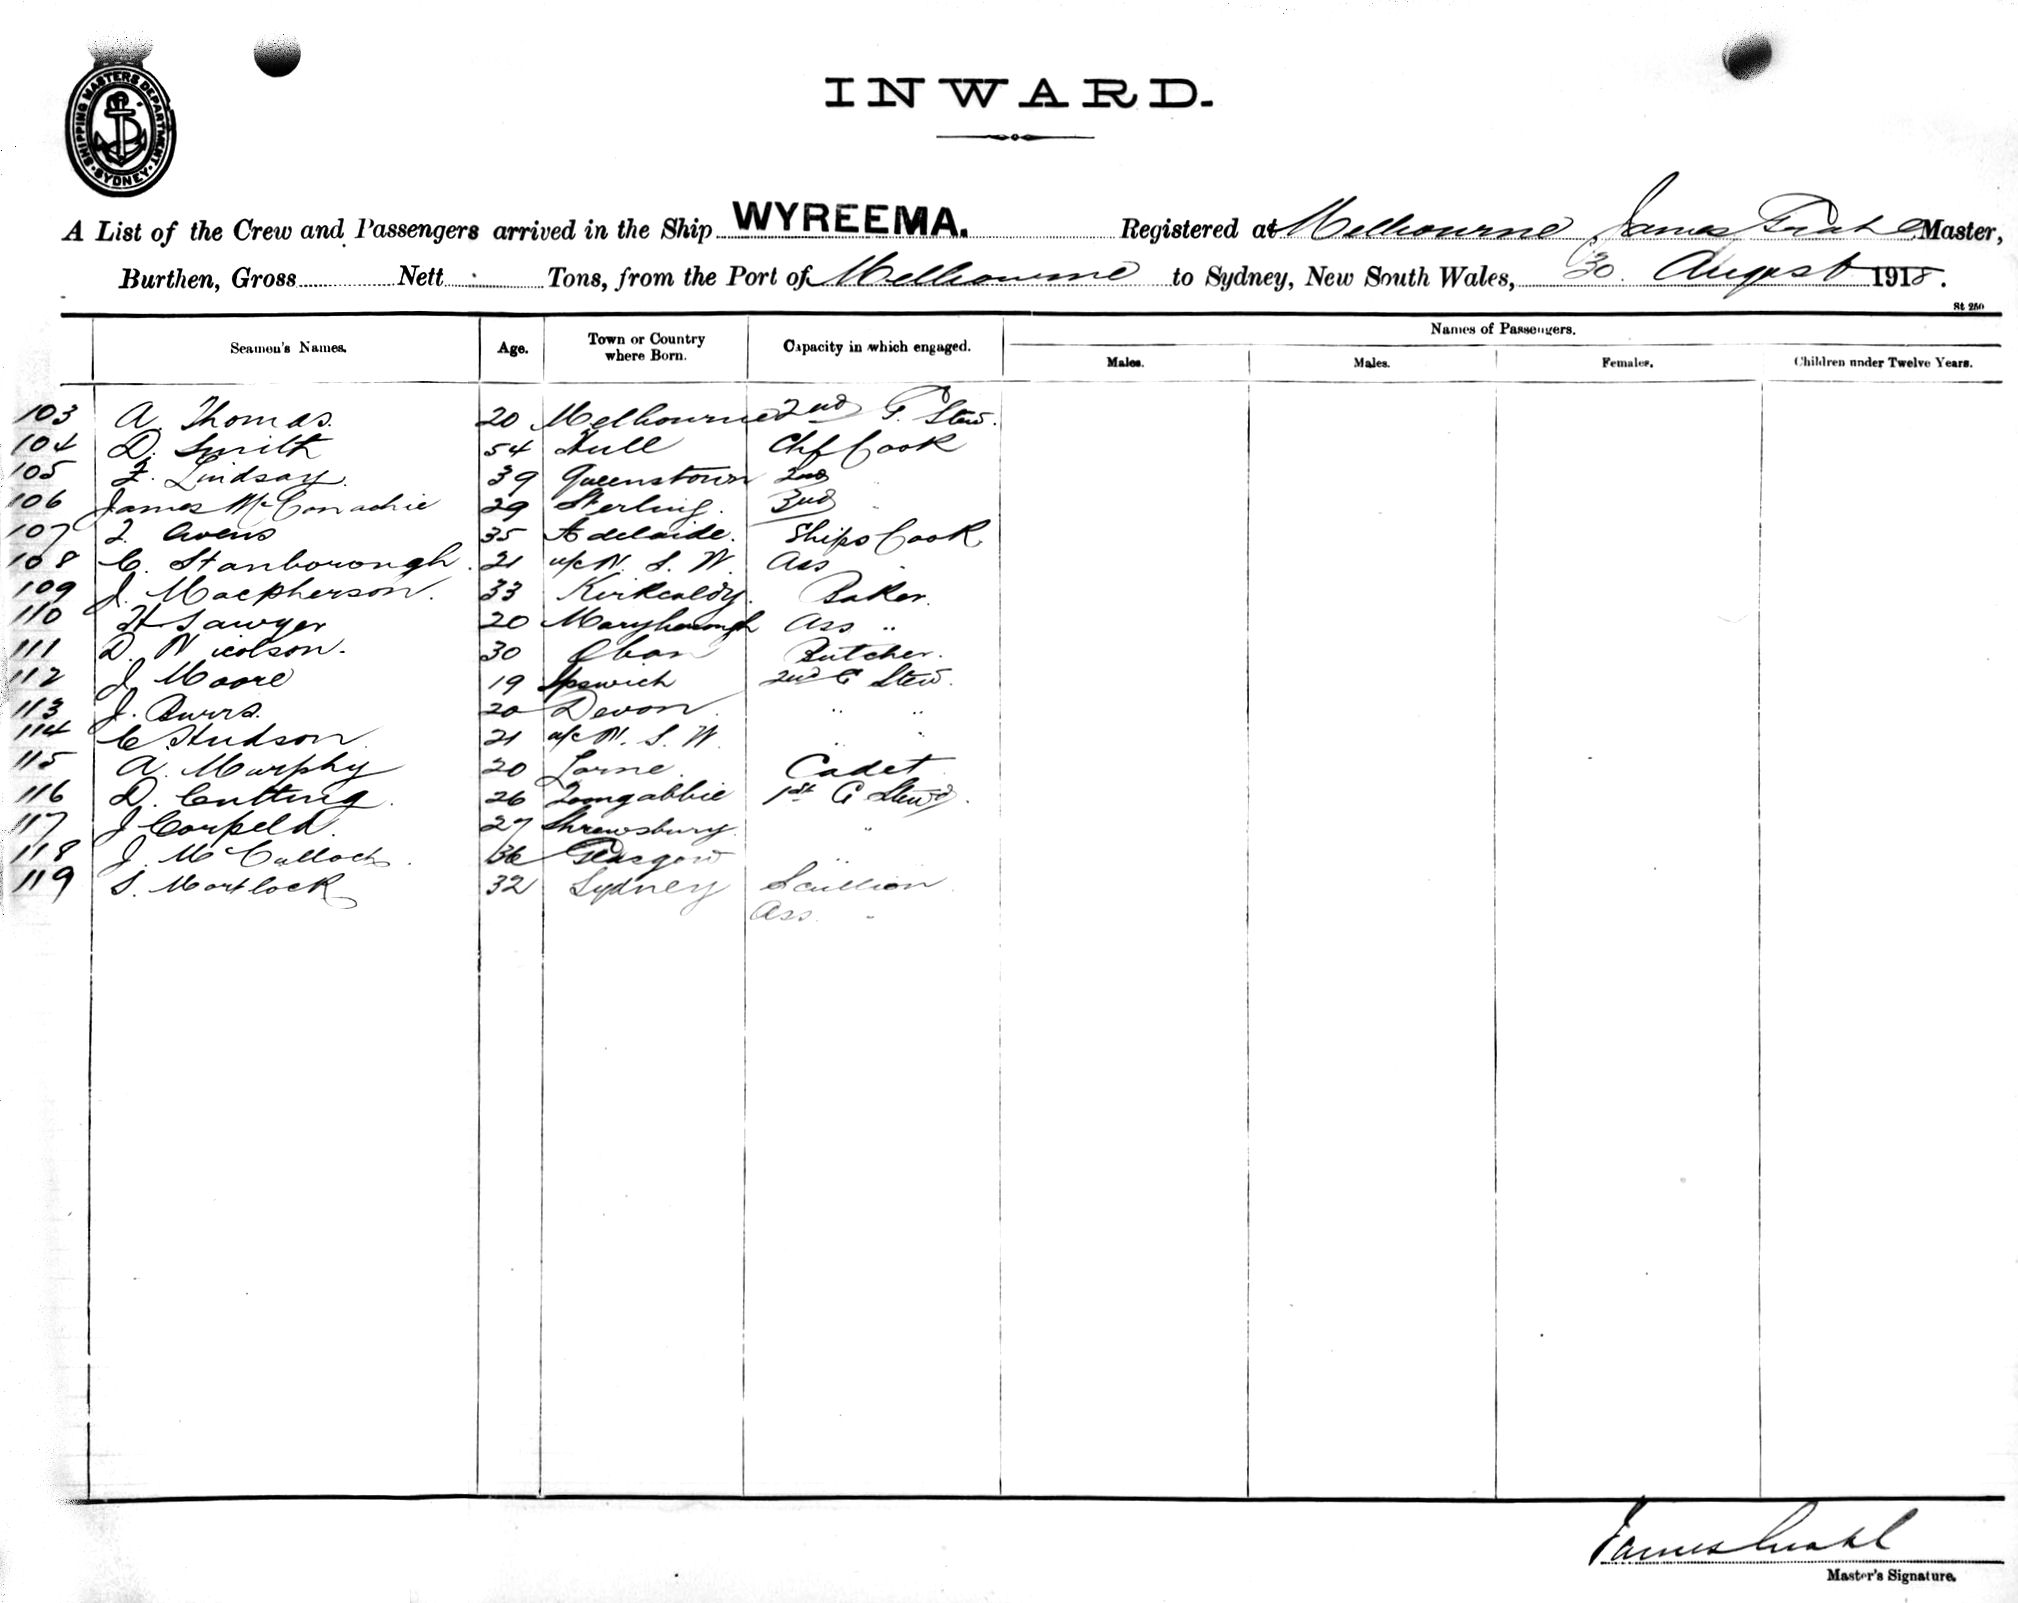 SHIPPING MASTERS DEPARTMENT
SYDNEY
INWARD.
A List of the Crew and Passengers arrived in the Ship WYREEMA. Registered at Melbourne James Master,
Burthen, Gross Nett Tons, from the Port of Melbourne to Sydney, New South Wales, 30 August 1918.
St 250
Seamen's Names. Age. Town or Country where Born. Capacity in which engaged. Names of Passengers.
Males. Males. Females. Children under Twelve Years.
103 A. Thomas. 20 Melbourne 2nd P. Stew.
104 D. Smith 54 Hull Chf Cook
105 F. Lindsay. 39 Queenstown 2nd "
106 James McConachie 29 Sterling. 3rd "
107 J. Owens 35 Adelaide. Ships Cook
108 C. Stanborough. 21 N. S. W. Ass "
109 J. Macpherson. 33 Kirkcaldy. Baker.
110 H Sawyer 20 Maryborough Ass "
111 D. Nicolson. 30 Oban Butcher.
112 J Moore 19 Ipswich 2nd C Stew.
113 J. Burrs. 20 Devon. " "
114 C. Hudson. 21 N. S. W. " "
115 A. Murphy 20 Lorne. Cadet
116 D. Cutting. 26 Toongabbie 1st C Stew'd.
117 J Corfield. 27 Shrewsbury. "
118 J. McCulloch. 36 Glasgow " "
119 S. Mortlock 32 Sydney Scullion
Ass. "
James
Master's Signature.